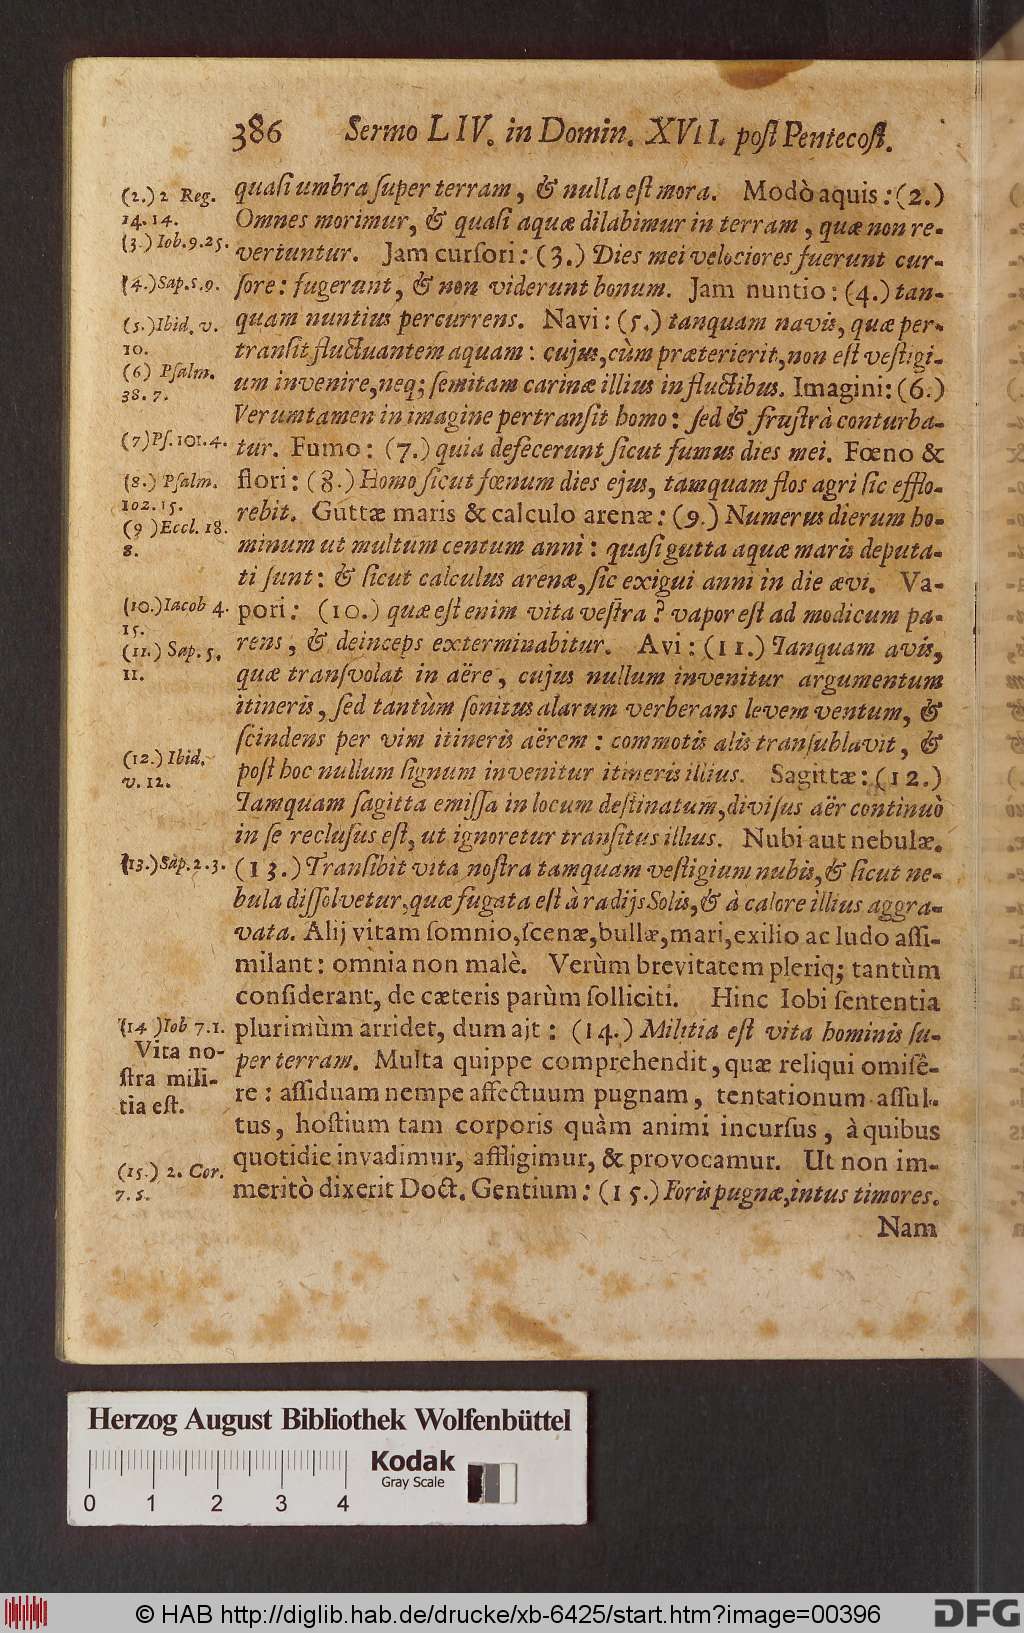 386 Sermo LIV. in Domin. XVII. poſt Pentecoſt.
quaſi umbra ſuper terram, & nulla eſt mora. Modò aquis: (2.)
Omnes morimur, & quaſi aquæ dilabimur in terram, quæ non re-
vertuntur. Jam curſori: (3.) Dies mei velociores fuerunt cur-
ſore: fugerunt, & non viderunt bonum. Jam nuntio: (4.) tan-
quam nuntius percurrens. Navi: (5.) tanquam navis, quæ per-
tranſit fluctuantem aquam: cujus, cùm præterierit, non eſt veſtigi-
um invenire, neq; ſemitam carinæ illius in fluctibus. Imagini: (6.)
Verumtamen in imagine pertranſit homo: ſed & fruſtrà conturba-
tur. Fumo: (7.) quia defecerunt ſicut fumus dies mei. Fœno &
flori: (8.) Homo ſicut fœnum dies ejus, tamquam flos agri ſic efflo-
rebit. Guttæ maris & calculo arenæ: (9.) Numerus dierum ho-
minum ut multum centum anni: quaſi gutta aquæ maris deputa-
ti ſunt: & ſicut calculus arenæ, ſic exigui anni in die ævi. Va-
pori: (10.) quæ eſt enim vita veſtra? vapor eſt ad modicum pa-
rens, & deinceps exterminabitur. Avi: (11.) Tanquam avis,
quæ tranſvolat in aëre, cujus nullum invenitur argumentum
itineris, ſed tantùm ſonitus alarum verberans levem ventum, &
ſcindens per vim itineris aërem: commotis alis tranſvblavit, &
poſt hoc nullum ſignum invenitur itineris illius. Sagittæ: (12.)
Tamquam ſagitta emiſſa in locum deſtinatum, diviſus aër continuò
in ſe recluſus eſt, ut ignoretur tranſitus illius. Nubi aut nebulæ.
(13.) Tranſibit vita noſtra tamquam veſtigium nubis, & ſicut ne-
bula diſſolvetur, quæ fugata eſt à radijs Solis, & à calore illius aggra-
vata. Alij vitam ſomnio, ſcenæ, bullæ, mari, exilio ac ludo aſſi-
milant: omnia non malè. Verùm brevitatem pleriq; tantùm
conſiderant, de cæteris parùm ſolliciti. Hinc Iobi ſententia
plurimùm arridet, dum ajt: (14.) Militia eſt vita hominis ſu-
per terram. Multa quippe comprehendit, quæ reliqui omiſê-
re: aſſiduam nempe affectuum pugnam, tentationum aſſul-
tus, hoſtium tam corporis quàm animi incurſus, à quibus
quotidie invadimur, affligimur, & provocamur. Ut non im-
meritò dixerit Doct. Gentium: (15.) Foris pugnæ, intus timores.
Nam
(2.) 2 Reg.
14. 14.
(3.) Iob. 9. 25.
(4.) Sap. 5. 9.
(5.) Ibid. v.
10.
(6) Pſalm.
38. 7.
(7) Pſ. 101. 4.
(8.) Pſalm.
102. 15.
(9) Eccl. 18.
8.
(10.) Iacob 4.
15.
(11.) Sap. 5.
11.
(12.) Ibid.
v. 12.
(13.) Sap. 2. 3.
(14) Iob 7. 1.
Vita no-
ſtra mili-
tia eſt.
(15.) 2. Cor.
7. 5.
Herzog August Bibliothek Wolfenbüttel
Kodak
Gray Scale
0 1 2 3 4
© HAB http://diglib.hab.de/drucke/xb-6425/start.htm?image=00396
DFG